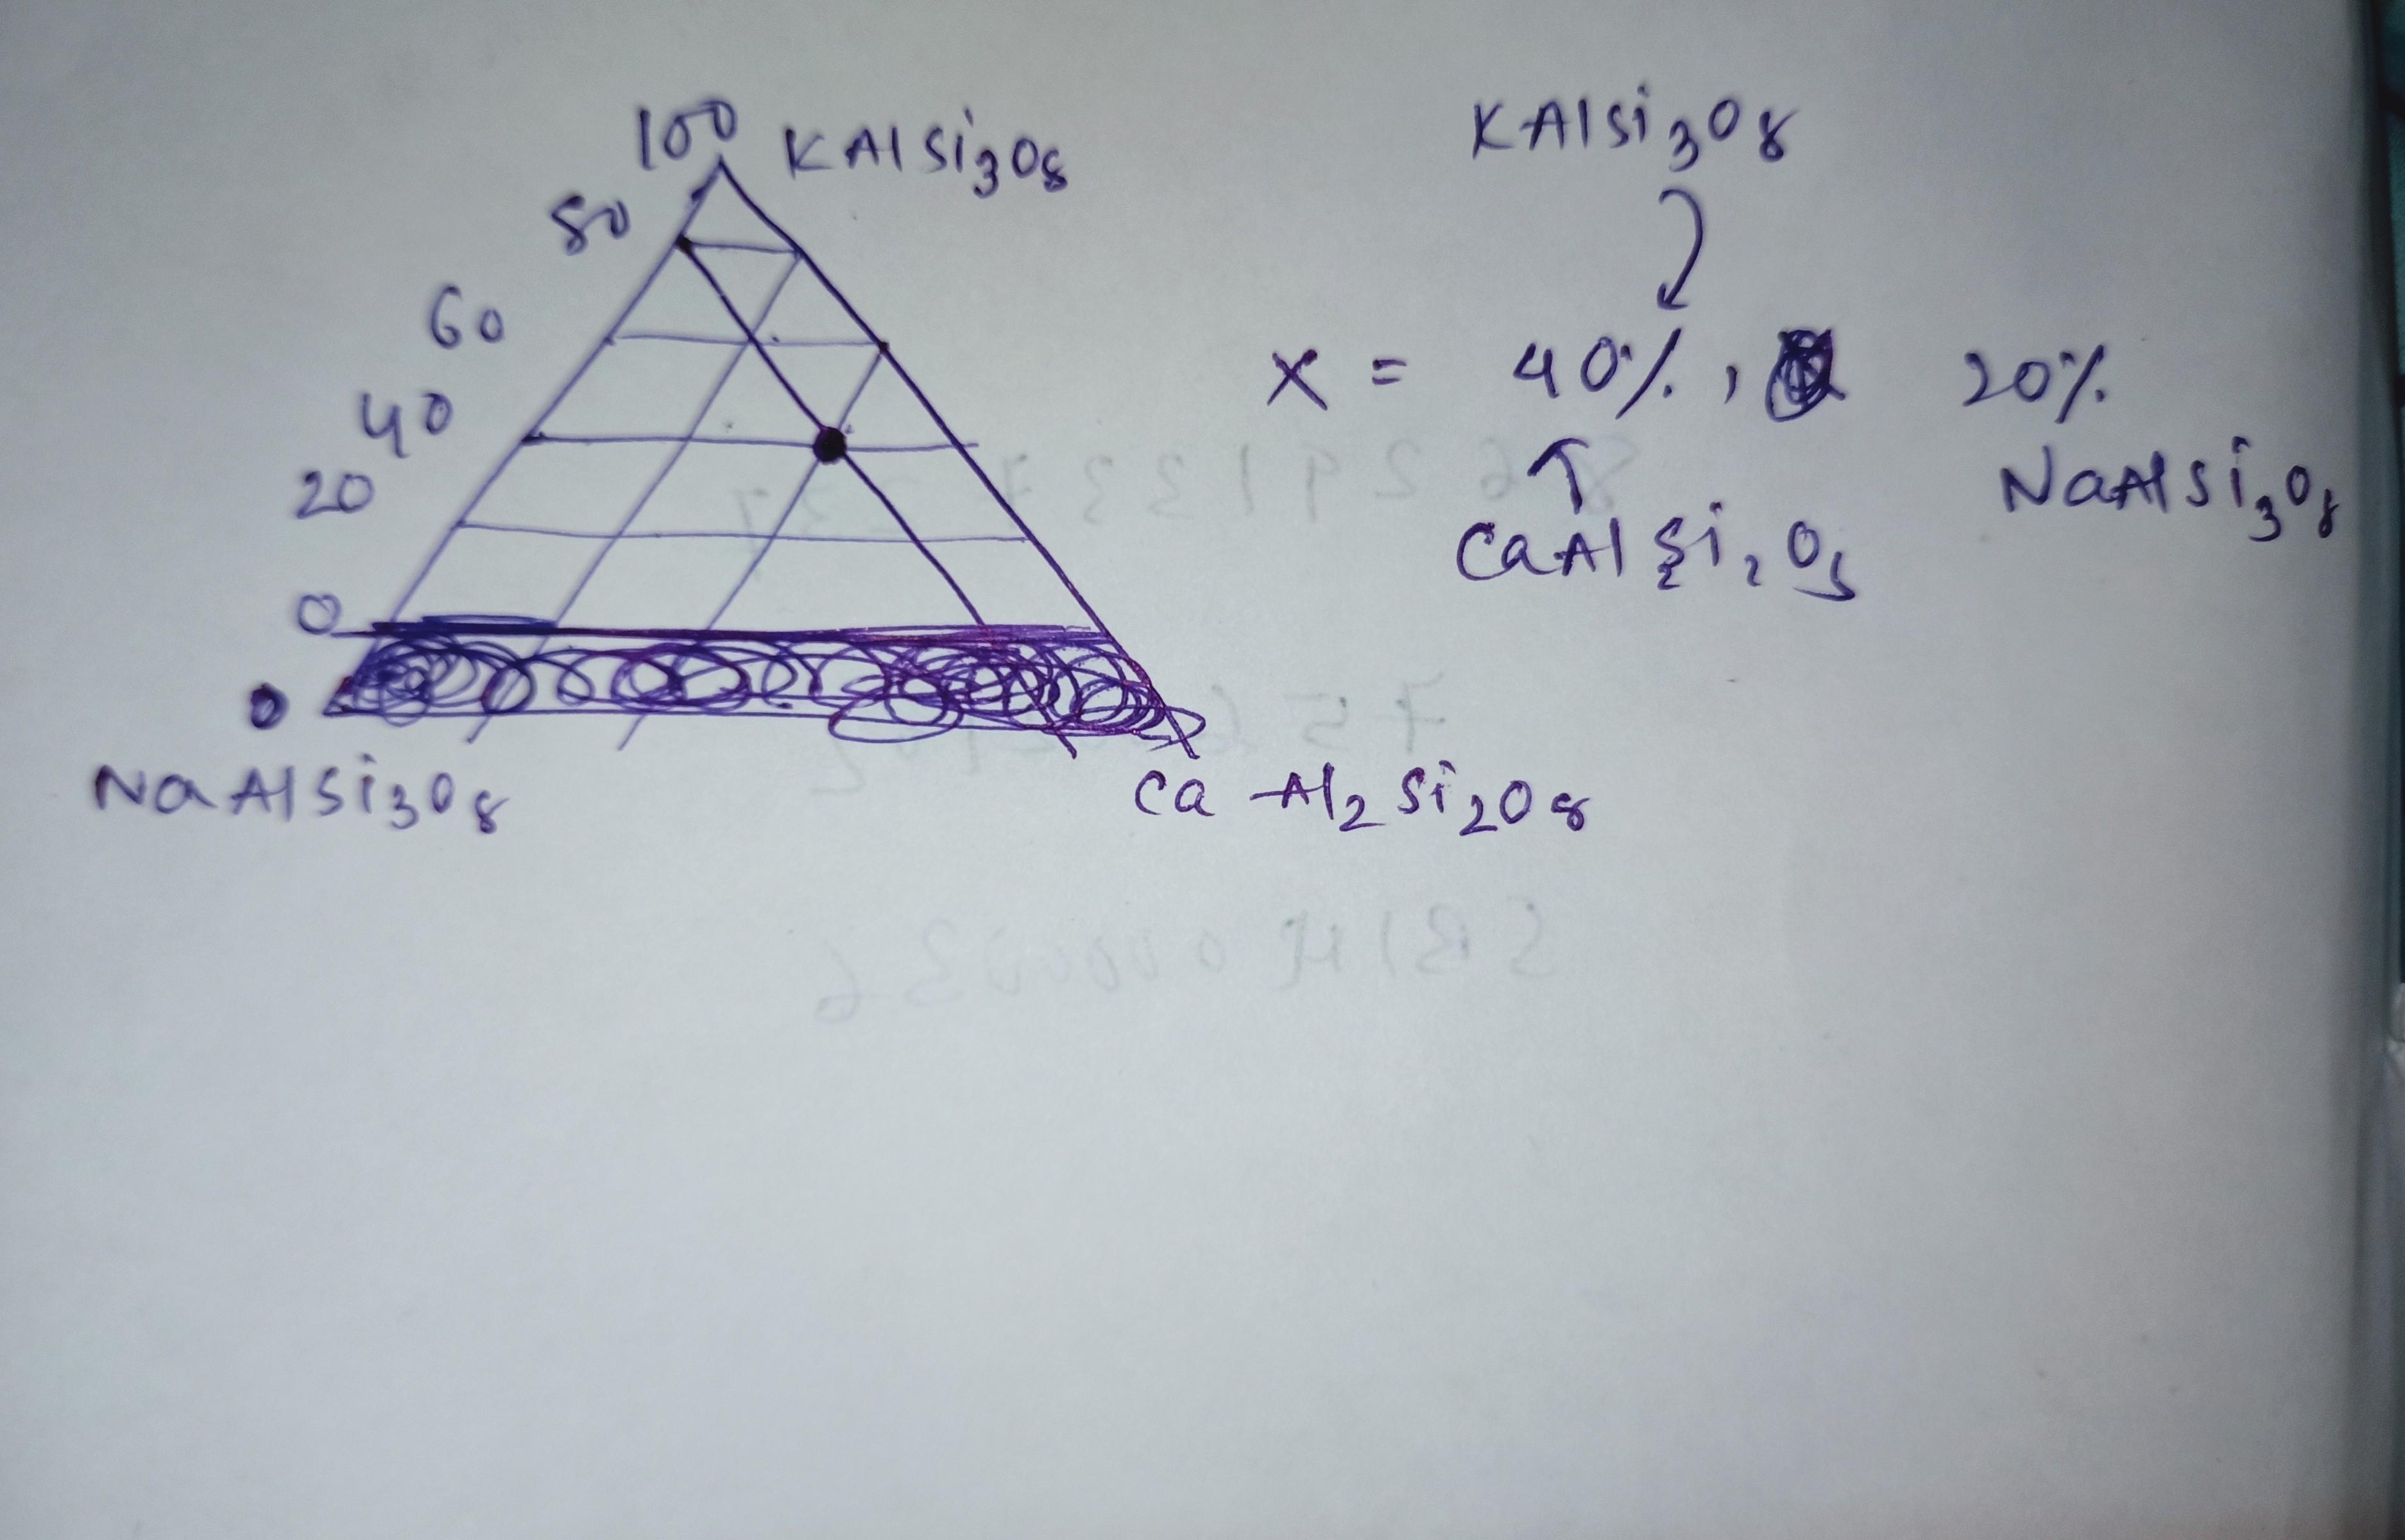 100 KAlSi3O8
80
60
40
20
0
0
NaAlSi3O8
Ca Al2 Si2O8
KAlSi3O8
X = 40%, 20%
NaAlSi3O8
CaAl2Si2O8